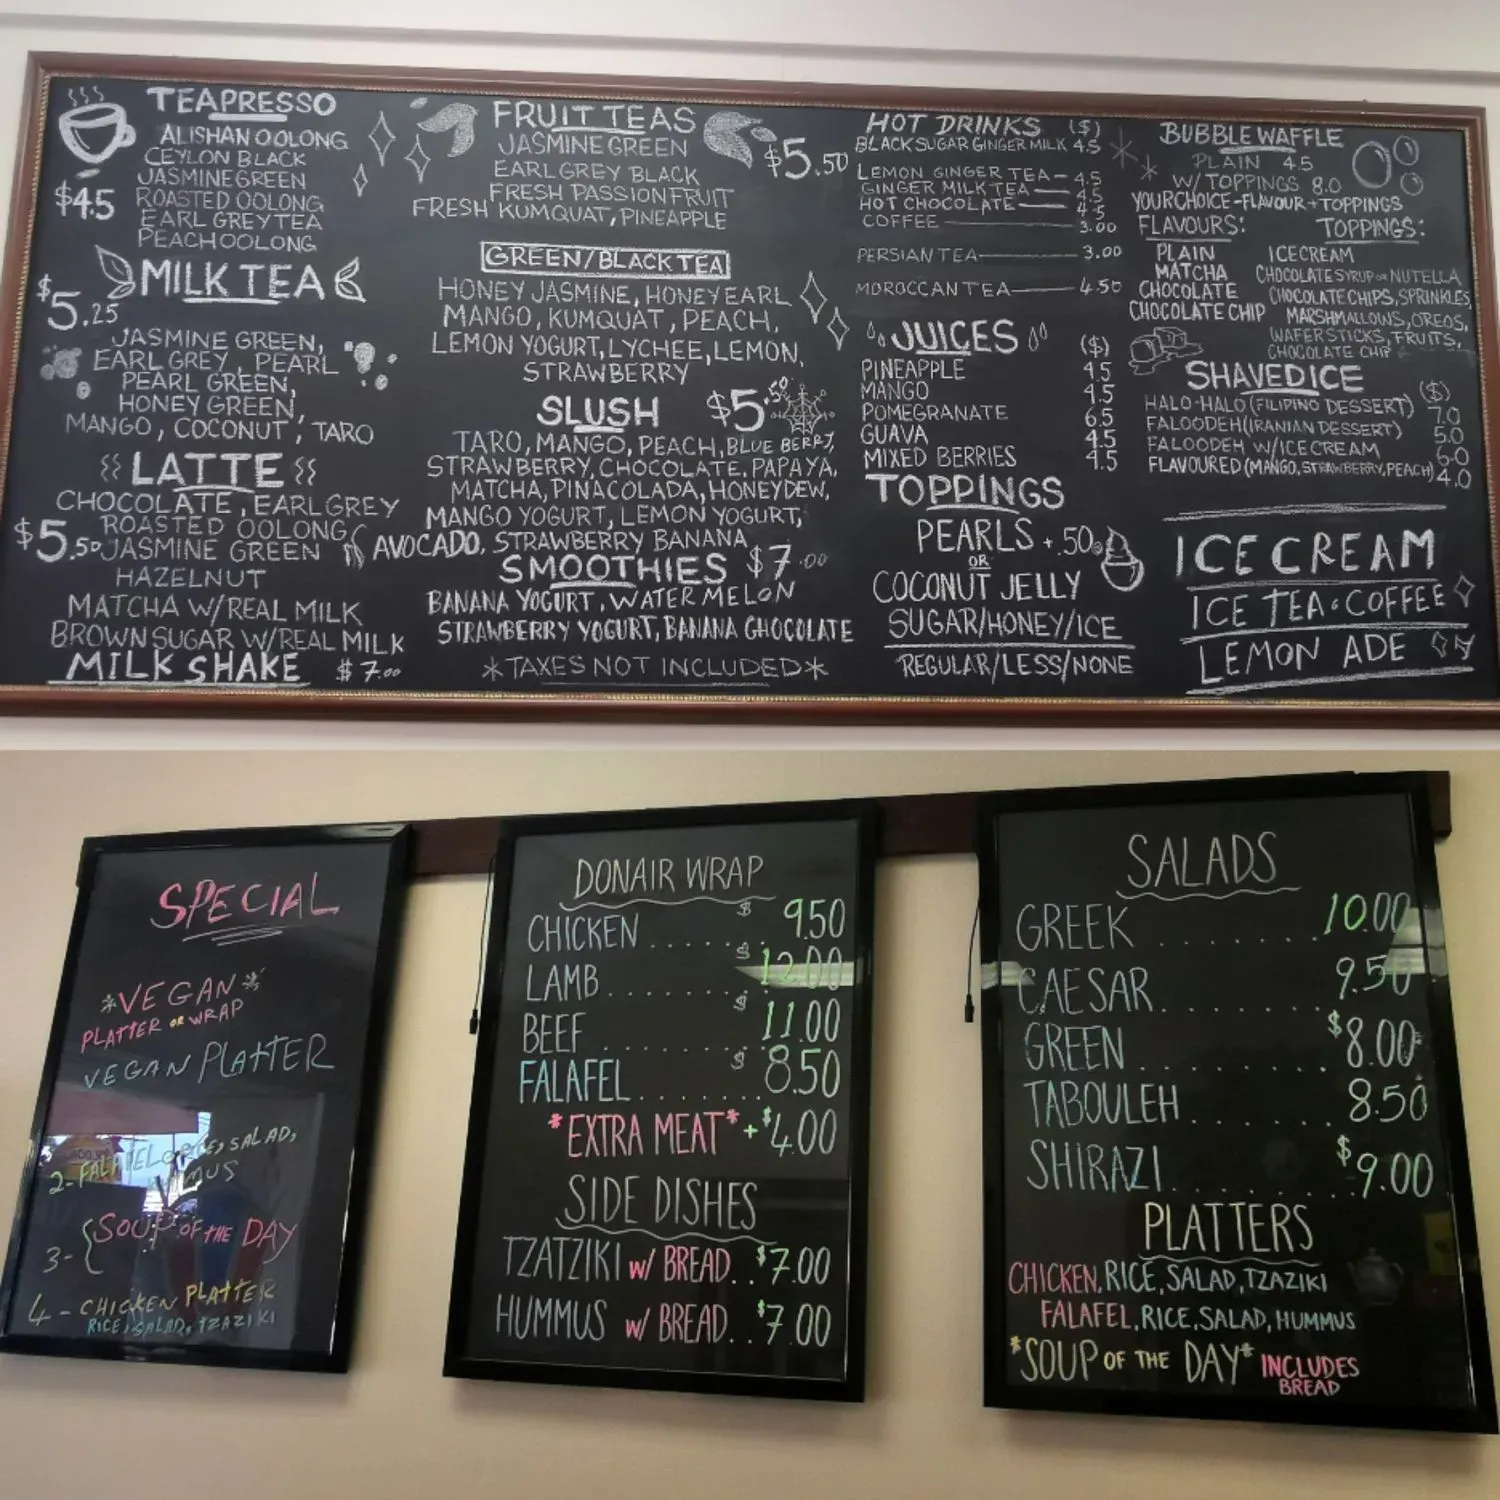 TEAPRESSO
ALISHAN OOLONG
CEYLON BLACK
JASMINE GREEN
$4.5
ROASTED OOLONG
EARL GREY TEA
PEACH OOLONG
MILK TEA
$5.25
JASMINE GREEN,
EARL GREY, PEARL
PEARL GREEN,
HONEY GREEN,
MANGO, COCONUT, TARO
LATTE
CHOCOLATE, EARL GREY
ROASTED OOLONG
$5.50 JASMINE GREEN
HAZELNUT
MATCHA W/REAL MILK
BROWN SUGAR W/REAL MILK
MILK SHAKE $7.00
FRUIT TEAS
$5.50
JASMINE GREEN
EARL GREY BLACK
FRESH PASSIONFRUIT
FRESH KUMQUAT, PINEAPPLE
GREEN/BLACK TEA
HONEY JASMINE, HONEY EARL
MANGO, KUMQUAT, PEACH,
LEMON YOGURT, LYCHEE, LEMON,
STRAWBERRY
SLUSH $5.50
TARO, MANGO, PEACH, BLUE BERRY,
STRAWBERRY, CHOCOLATE, PAPAYA,
MATCHA, PINACOLADA, HONEYDEW,
MANGO YOGURT, LEMON YOGURT,
AVOCADO, STRAWBERRY BANANA
SMOOTHIES $7.00
BANANA YOGURT, WATERMELON
STRAWBERRY YOGURT, BANANA CHOCOLATE
*TAXES NOT INCLUDED*
HOT DRINKS ($)
BLACK SUGAR GINGER MILK 4.5
LEMON GINGER TEA - 4.5
GINGER MILK TEA — 4.5
HOT CHOCOLATE — 4.5
COFFEE — 3.00
PERSIAN TEA — 3.00
MOROCCAN TEA — 4.50
JUICES ($)
PINEAPPLE 4.5
MANGO 4.5
POMEGRANATE 6.5
GUAVA 4.5
MIXED BERRIES 4.5
TOPPINGS
PEARLS +.50
OR
COCONUT JELLY
SUGAR/HONEY/ICE
REGULAR/LESS/NONE
BUBBLE WAFFLE
PLAIN 4.5
W/TOPPINGS 8.0
YOUR CHOICE-FLAVOUR+TOPPINGS
FLAVOURS: TOPPINGS:
PLAIN ICECREAM
MATCHA CHOCOLATE SYRUP or NUTELLA
CHOCOLATE CHOCOLATE CHIPS, SPRINKLES,
CHOCOLATE CHIP MARSHMALLOWS, OREOS,
WAFER STICKS, FRUITS,
CHOCOLATE CHIP
SHAVED ICE ($)
HALO-HALO (FILIPINO DESSERT) 7.0
FALOODEH (IRANIAN DESSERT) 5.0
FALOODEH W/ICE CREAM 6.0
FLAVOURED (MANGO, STRAWBERRY, PEACH) 4.0
ICE CREAM
ICE TEA • COFFEE
LEMON ADE
SPECIAL
*VEGAN*
PLATTER OR WRAP
VEGAN PLATTER
2- FALAFEL RICE, SALAD,
HUMUS
3- {SOUP OF THE DAY
4 - CHICKEN PLATTER
RICE, SALAD, TZAZIKI
DONAIR WRAP
CHICKEN ...... $ 9.50
LAMB ........ $ 12.00
BEEF ........ $ 11.00
FALAFEL ...... $ 8.50
*EXTRA MEAT* + $4.00
SIDE DISHES
TZATZIKI w/ BREAD.. $7.00
HUMMUS w/ BREAD.. $7.00
SALADS
GREEK ....... 10.00
CAESAR ....... 9.50
GREEN ........ $8.00
TABOULEH ...... 8.50
SHIRAZI ........ $9.00
PLATTERS
CHICKEN, RICE, SALAD, TZAZIKI
FALAFEL, RICE, SALAD, HUMMUS
*SOUP OF THE DAY* INCLUDES
BREAD